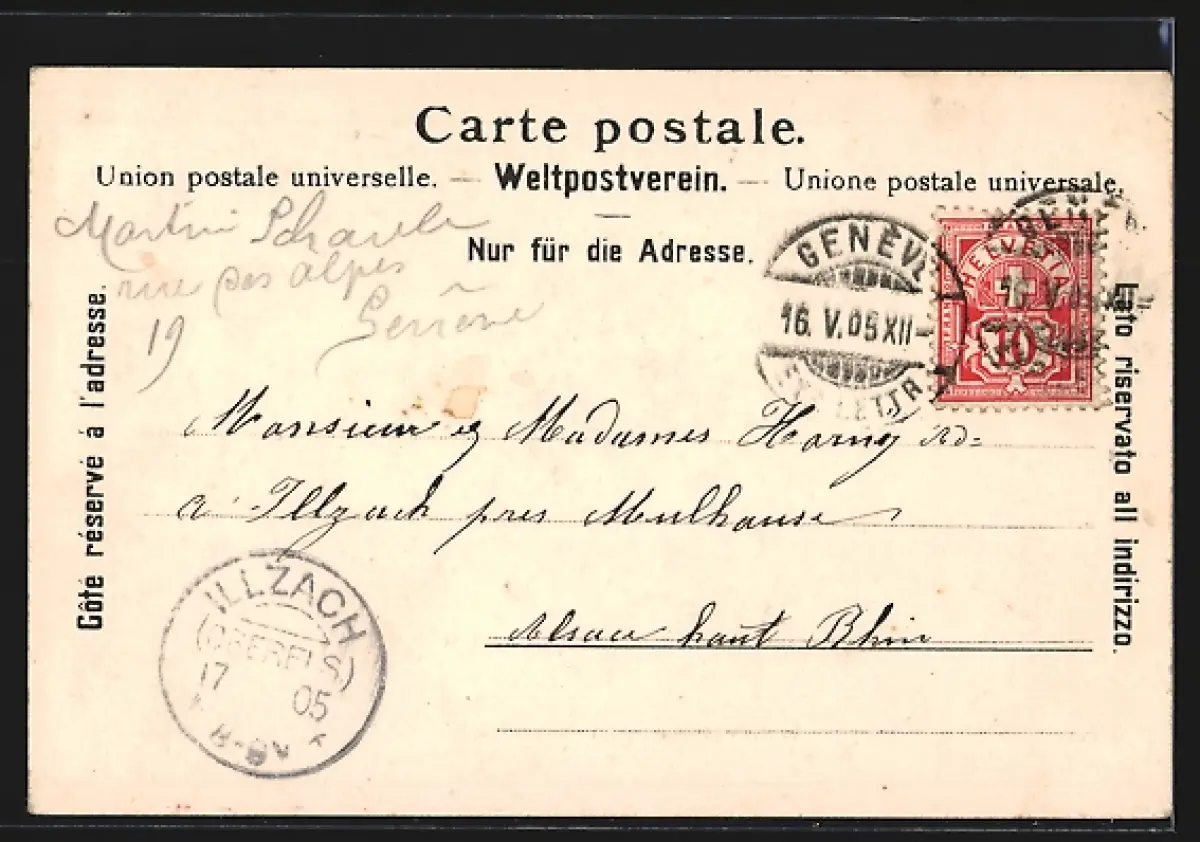 Carte postale.
Union postale universelle. — Weltpostverein. — Unione postale universale.
Nur für die Adresse.
Côté réservé à l'adresse.
Lato riservato all indirizzo.
Martin
rue des alpes
19
Genève
GENÈVE
16. V. 05 XII-
LETTR
HELVETIA
10
Monsieur et Madames Hornÿ
à Illzach pres Mulhouse
Alsace haut Rhin
ILLZACH
(OBERELS.)
17 05
8-9V